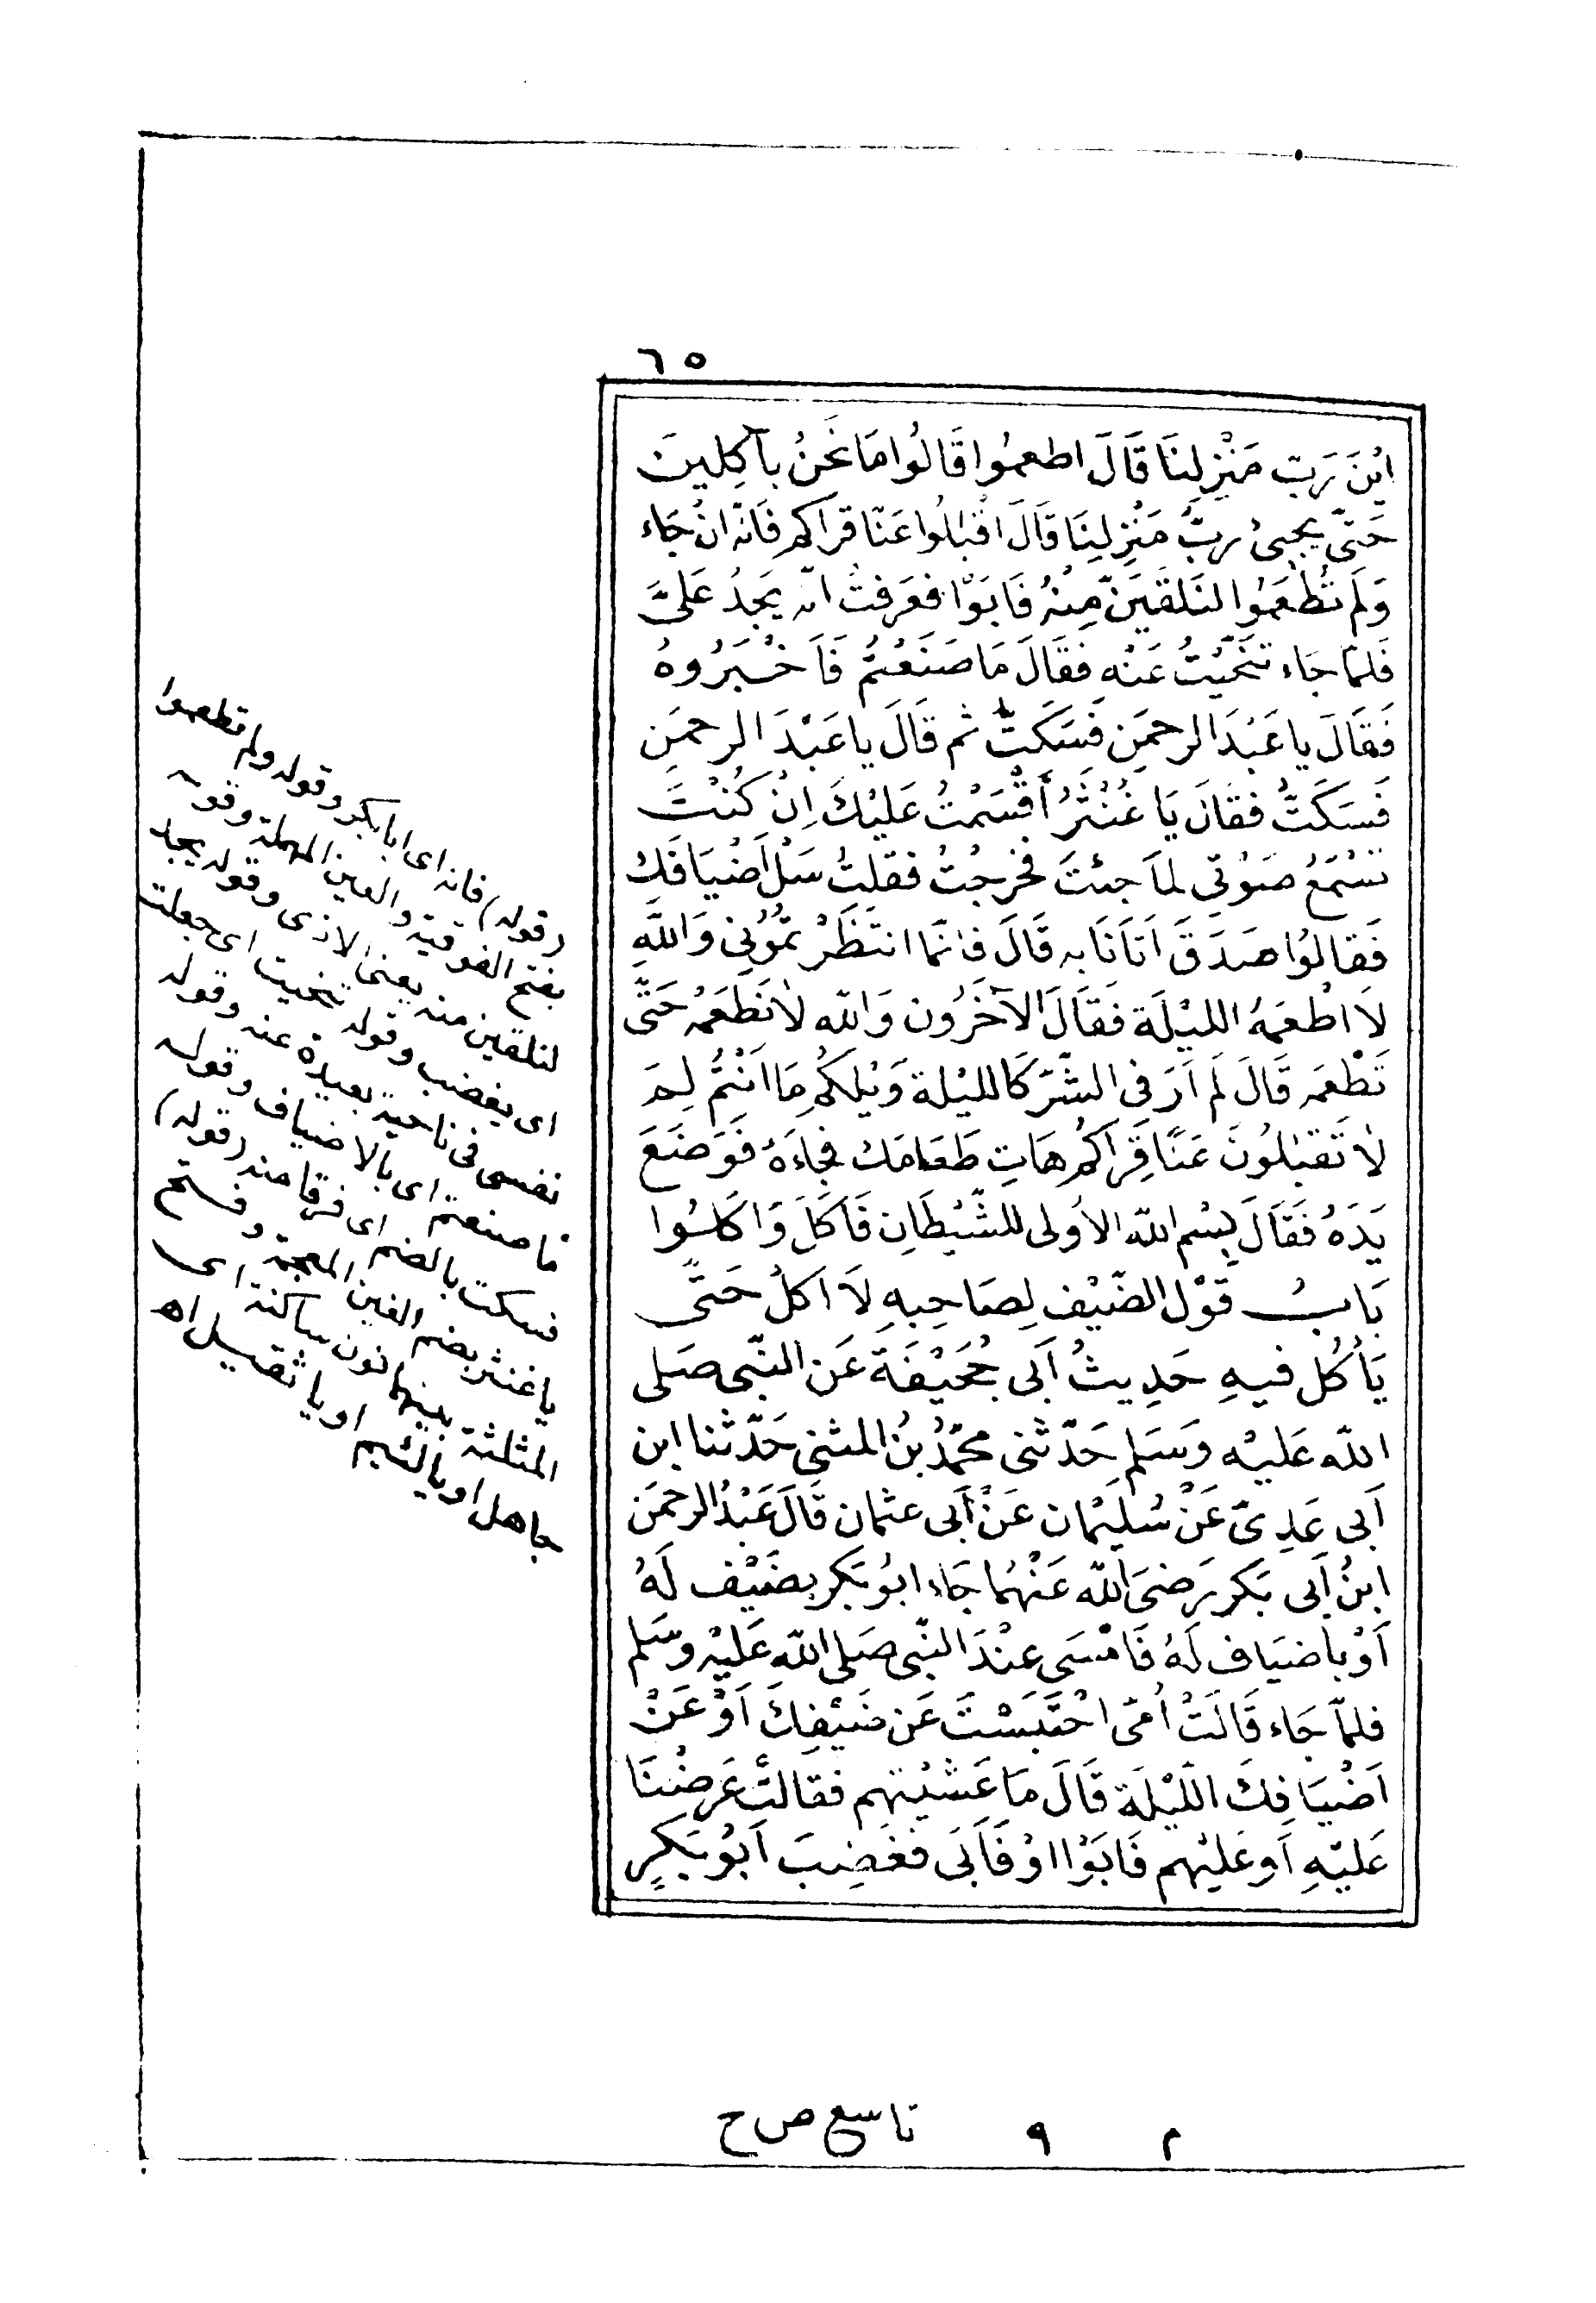 ٦٥
ايْنَ رَبّ مَنْزِلِنَا قَالَ اطعمُوا قَالُوا مَا نَحْنُ بآكِلينَ
حَتّى يجىئ ربُّ مَنْزِلِنَا قَالَ اقْبَلُوا عَنّا قراكم فَانّه انْ جَاء
وَلَم تُطْعَمُوا لنَلقَيَنّ مِنْهُ فَابَوْا فعَرَفتُ انّه يَجدُ عَلىَّ
فَلمّا جَاء تنَحّيْتُ عَنْهِ فقَالَ مَا صَنَعْتُمْ فَاَخْبَرُوهُ
فَقَالَ يا عَبْدَ الرحمَن فَسَكَتُّ ثم قَالَ يا عَبْدَ الرحمَن
فَسَكَتُّ فقَالَ يَا غُنْثَرُ أَقْسَمْتُ عَلَيْكَ اِنْ كُنْتَ
تسْمَعُ صَوْتى لمَا جئتَ فخرجْتُ فقلتُ سَلْ اَضْيَافَكَ
فَقالُوا صَدَقَ اَتَانَا به قَالَ فانمّا انتَظَرْتمُوُنى وَاللّهِ
لاَ اطْعَمُهُ الليْلَة فَقَالَ الآخَرُون وَاللّه لاَ نَطْعَمُه حَتّى
تَطْعَمه قَالَ لَم اَرَ فى الشّرّ كَالليْلة وَيْلكُم مَا اَنْتُمْ لِمَ
لاَ تَقْبَلُونَ عَنّا قِرَاكُم هَاتِ طَعَامَك فجاءَهُ فَوَضَعَ
يَدَهُ فَقَالَ بِسْم اللّه الاُولى للشّيْطَان فَاَكَلَ وَاَكَلُوا
بَابُ قَوْل الضّيْف لِصَاحِبهِ لاَ اَكلُ حَتّى
يَأكُل فيهِ حَدِيثُ اَبى جُحَيْفَةَ عَن النّبى صَلى
اللّه عَليْه وَسَلم حَدّثنى محمّدُ بنُ المثنى حَدّثنا ابن
اَبى عَدِىّ عَنْ سُليْمان عَنْ أَبى عثمان قَالَ عَبْدُ الرحمَن
ابنُ اَبى بَكر رَضىَ اللّه عَنْهُما جَاء ابُو بَكر بضَيْف لَهُ
اَوْ باضيَاف لَهُ فَامْسَى عنْدَ النّبى صَلى اللّه عَليْه وسَلم
فلمّا جَاء قَالَتْ اُمّى احْتَبَسْتَ عَن ضَيْفِكَ اَوْ عَنْ
اَضْيَافِكَ اللّيْلَة قَالَ مَا عَشّيْتهم فقالتْ عَرَضْنَا
عَليْهِ اَو عَليْهم فَابَوْا اوْ فَاَبَى فغَضِبَ اَبُو بَكِرٍ
(قوله) فانه اى ابا بكر وقوله ولم تطعموا
بفتح الفوقية والعين المهملة وقوله
لنلقين منه يعنى الاذى وقوله يجد
اى يغضب وقوله تنحيت اى جعلت
نفسى فى ناحية بعيدة عنه وقوله
ما صنعتم اى بالاضياف وقوله
فسكت بالضم اى فرقا منه (قوله)
يا غنثر بضم الغين المعجمة وفتح
المثلثة بينهما نون ساكنة اى
جاهل او يا لئيم او يا ثقيل اه
٢ ٩ تاسع ص ح